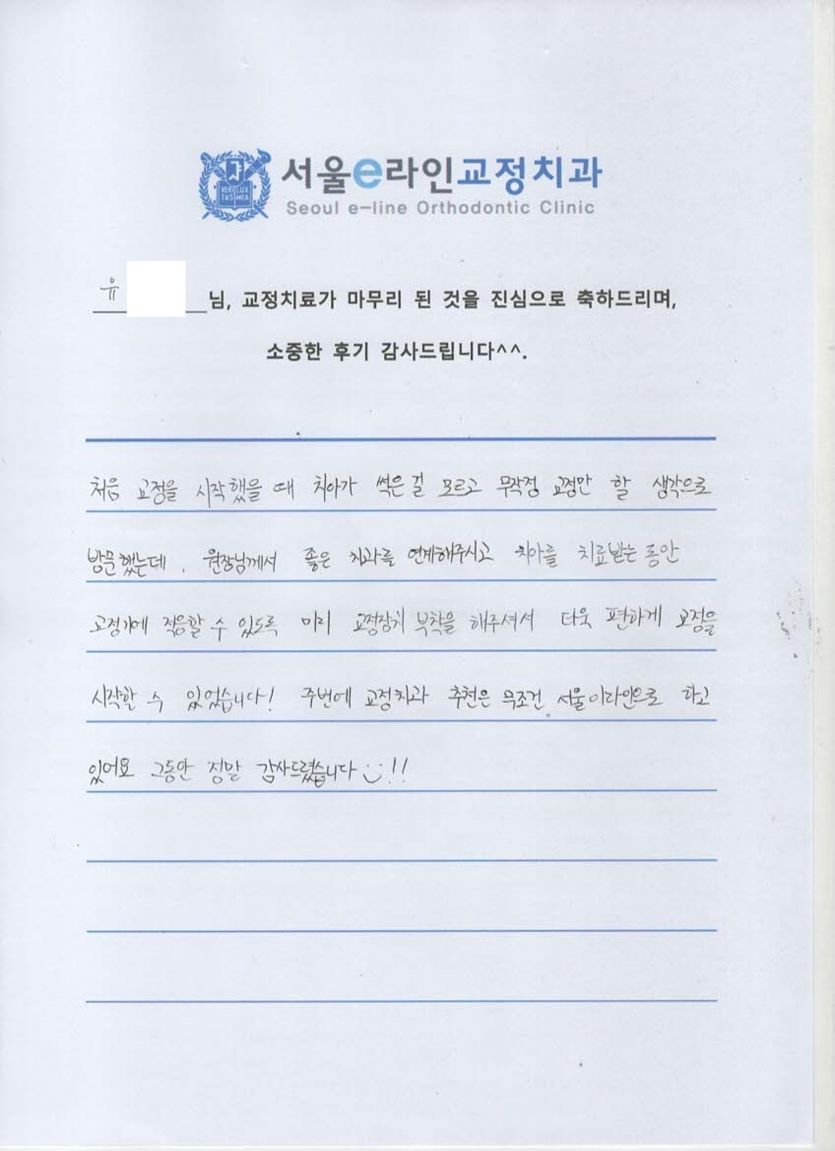 VERI LUX
TAS MEA
서울e라인교정치과
Seoul e-line Orthodontic Clinic
유 님, 교정치료가 마무리 된 것을 진심으로 축하드리며,
소중한 후기 감사드립니다^^.
처음 교정을 시작했을 때 치아가 썩은걸 모르고 무작정 교정만 할 생각으로
방문했는데, 원장님께서 좋은 치과를 연계해주시고 치아를 치료받는동안
교정기에 적응할 수 있도록 미리 교정장치 부착을 해주셔서 더욱 편하게 교정을
시작할 수 있었습니다! 주변에 교정치과 추천은 무조건 서울이라인으로 하고
있어요 그동안 정말 감사드렸습니다 !!